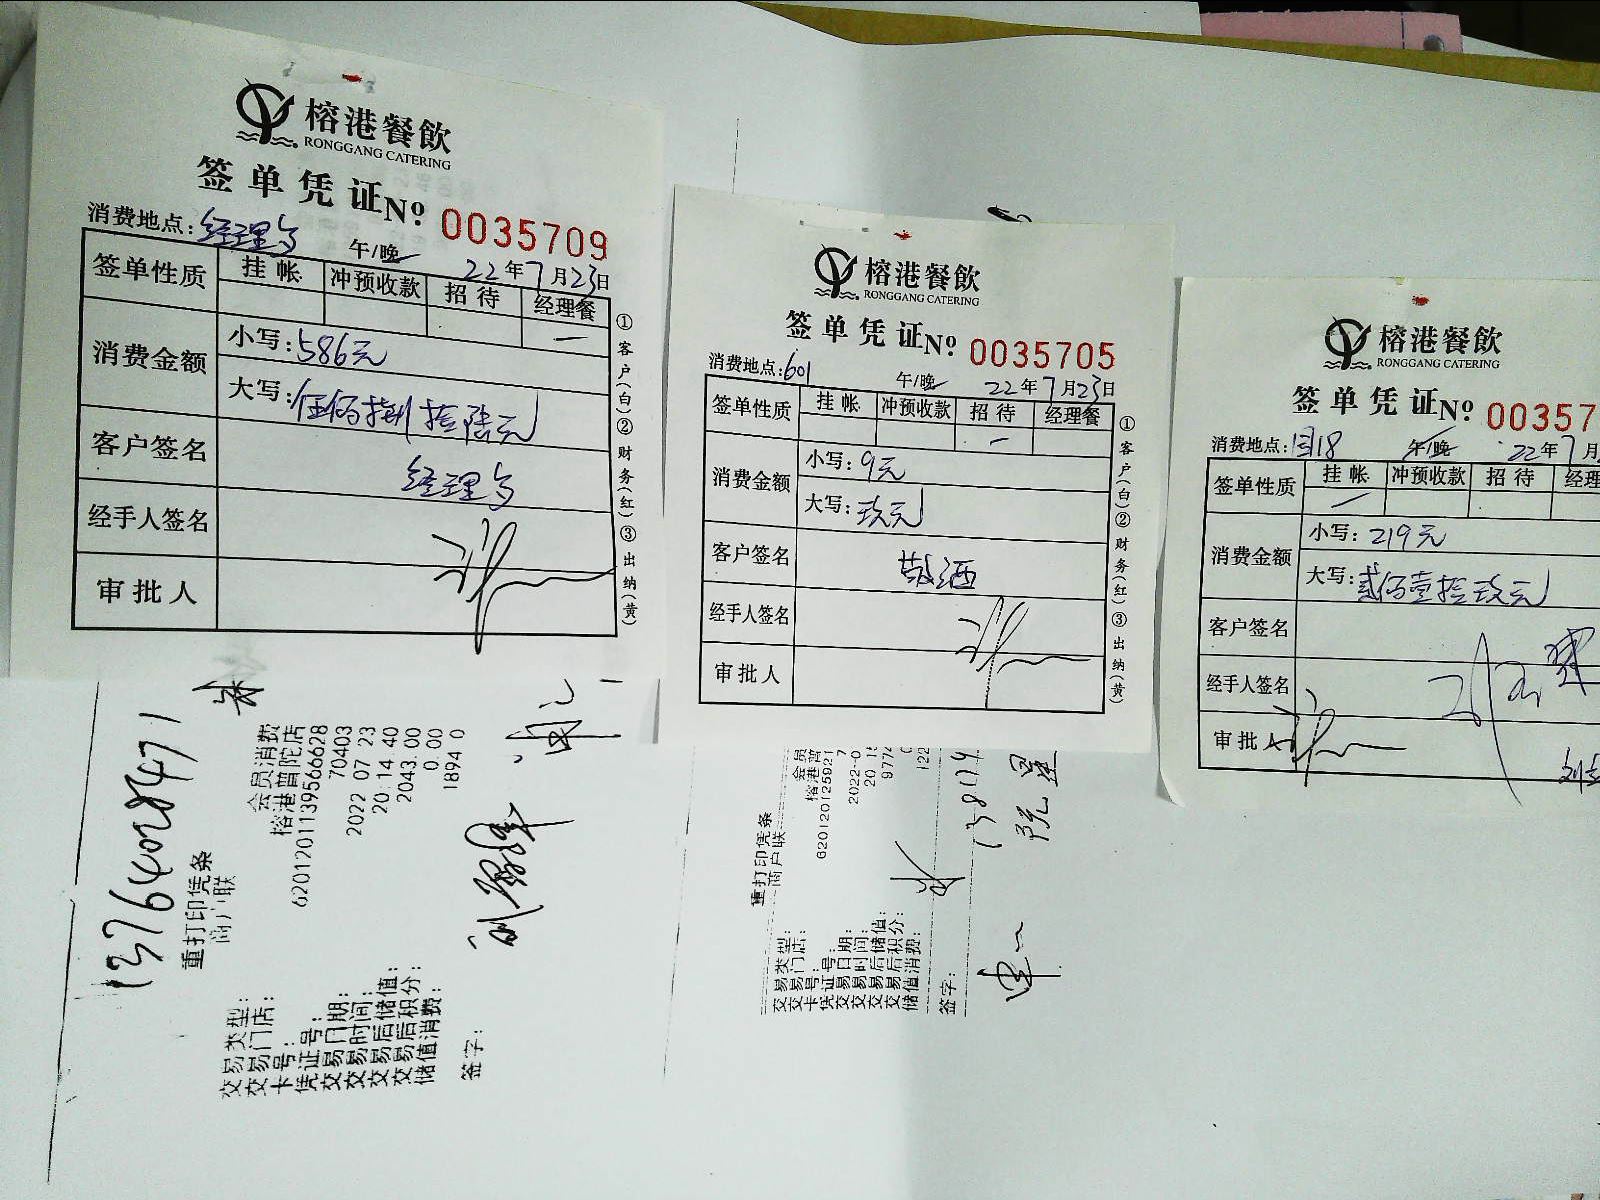 榕港餐飲
RONGGANG CATERING
签单凭证 No: 0035709
消费地点:经理 午/晚 22年7月23日
签单性质 挂帐 冲预收款 招待 经理餐
一
消费金额
小写:586元
大写:伍佰捌拾陆元
客户签名 经理
经手人签名
审批人
①客户(白)②财务(红)③出纳(黄)
榕港餐飲
RONGGANG CATERING
签单凭证 No: 0035705
消费地点:601 午/晚 22年7月23日
签单性质 挂帐 冲预收款 招待 经理餐
一
消费金额
小写:9元
大写:玖元
客户签名 敬酒
经手人签名
审批人
①客户(白)②财务(红)③出纳(黄)
榕港餐飲
RONGGANG CATERING
签单凭证 No: 00357
消费地点: 18 午/晚 22年7月
签单性质 挂帐 冲预收款 招待 经理
消费金额
小写:219元
大写:贰佰壹拾玖元
客户签名
经手人签名
审批人
13764028471
重打印凭条
商户联
交易类型: 会员消费
交易门店: 榕港普陀店
卡号: 6201201139566628
凭证号: 70403
交易日期: 2022 07 23
交易时间: 20:14:40
交易后储值: 2043.00
交易后积分: 0.00
储值消费: 1894 0
签字:
重打印凭条
商户联
交易类型: 会员
交易门店: 榕港普
卡号: 620120125921
凭证号: 7
交易日期: 2022-0
交易时间: 20:1
交易后储值: 977
交易后积分: 0
储值消费: 122
签字: